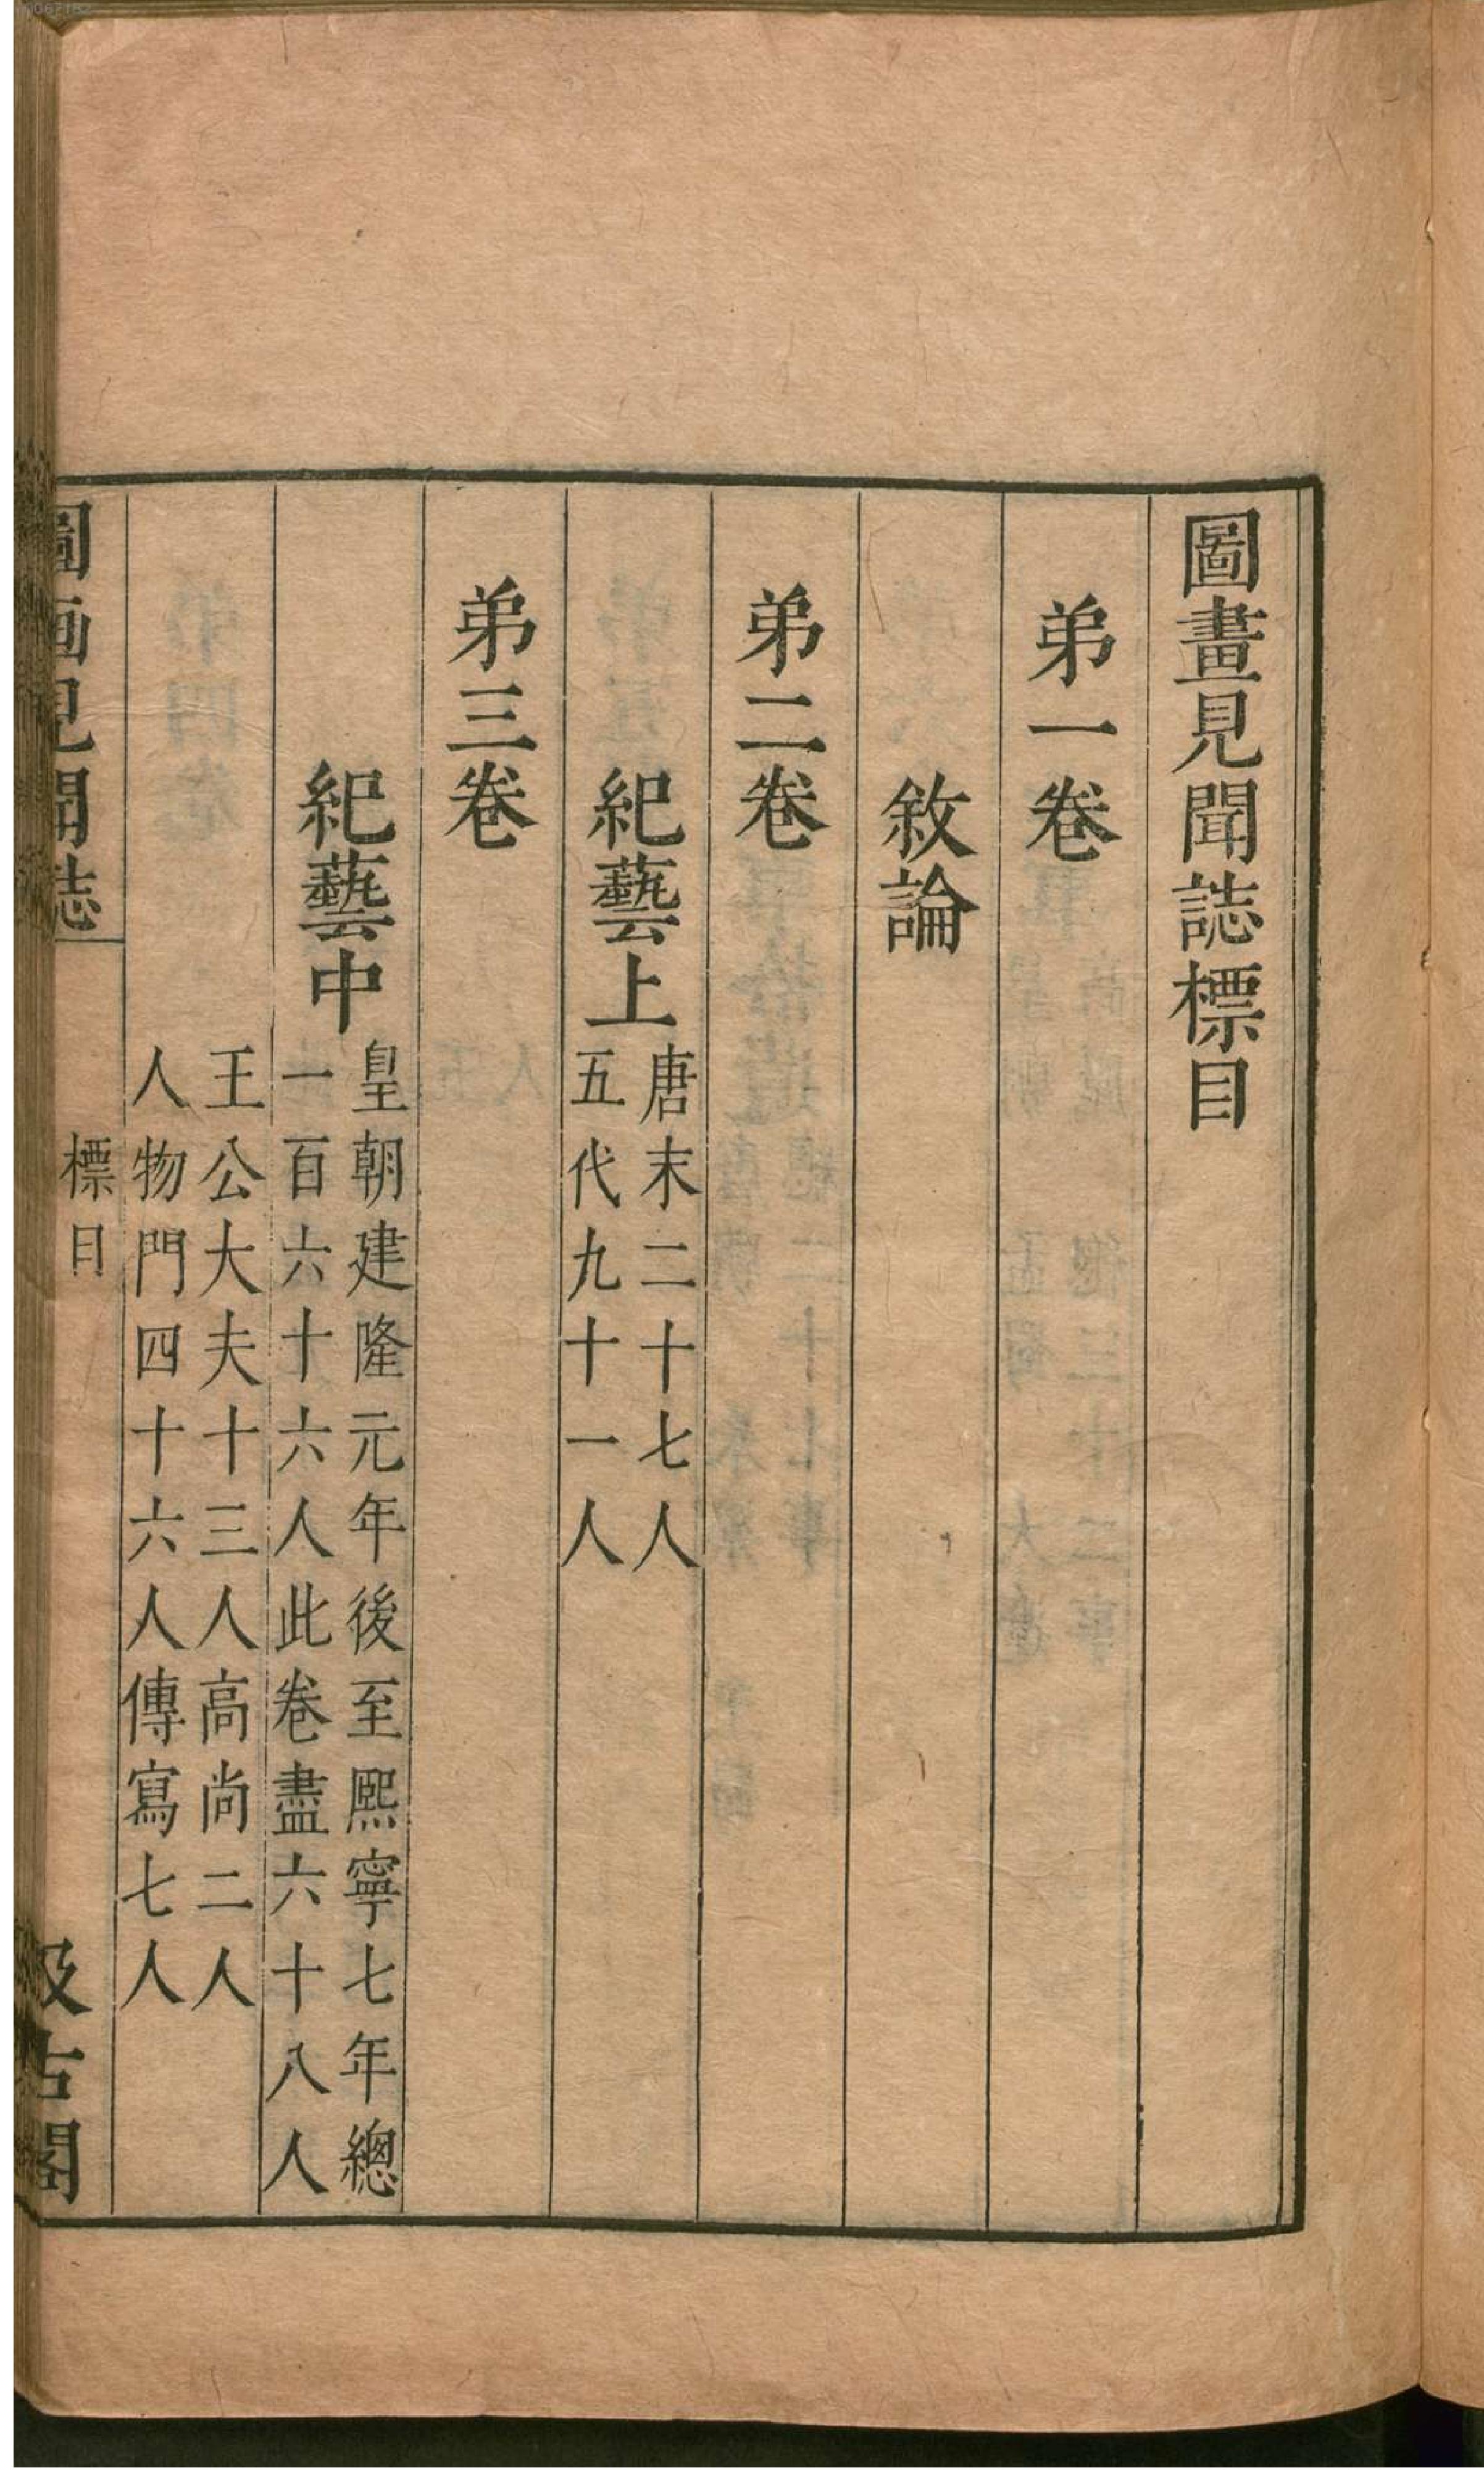 圖畫見聞誌標目
弟一卷
敘論
弟二卷
紀藝上
唐末二十七人
五代九十一人
弟三卷
紀藝中
皇朝建隆元年後至熈寧七年總
一百六十六人此卷盡六十八人
王公大夫十三人高尚二人
人物門四十六人傳寫七人
圖画見聞誌
標目
汲古閣